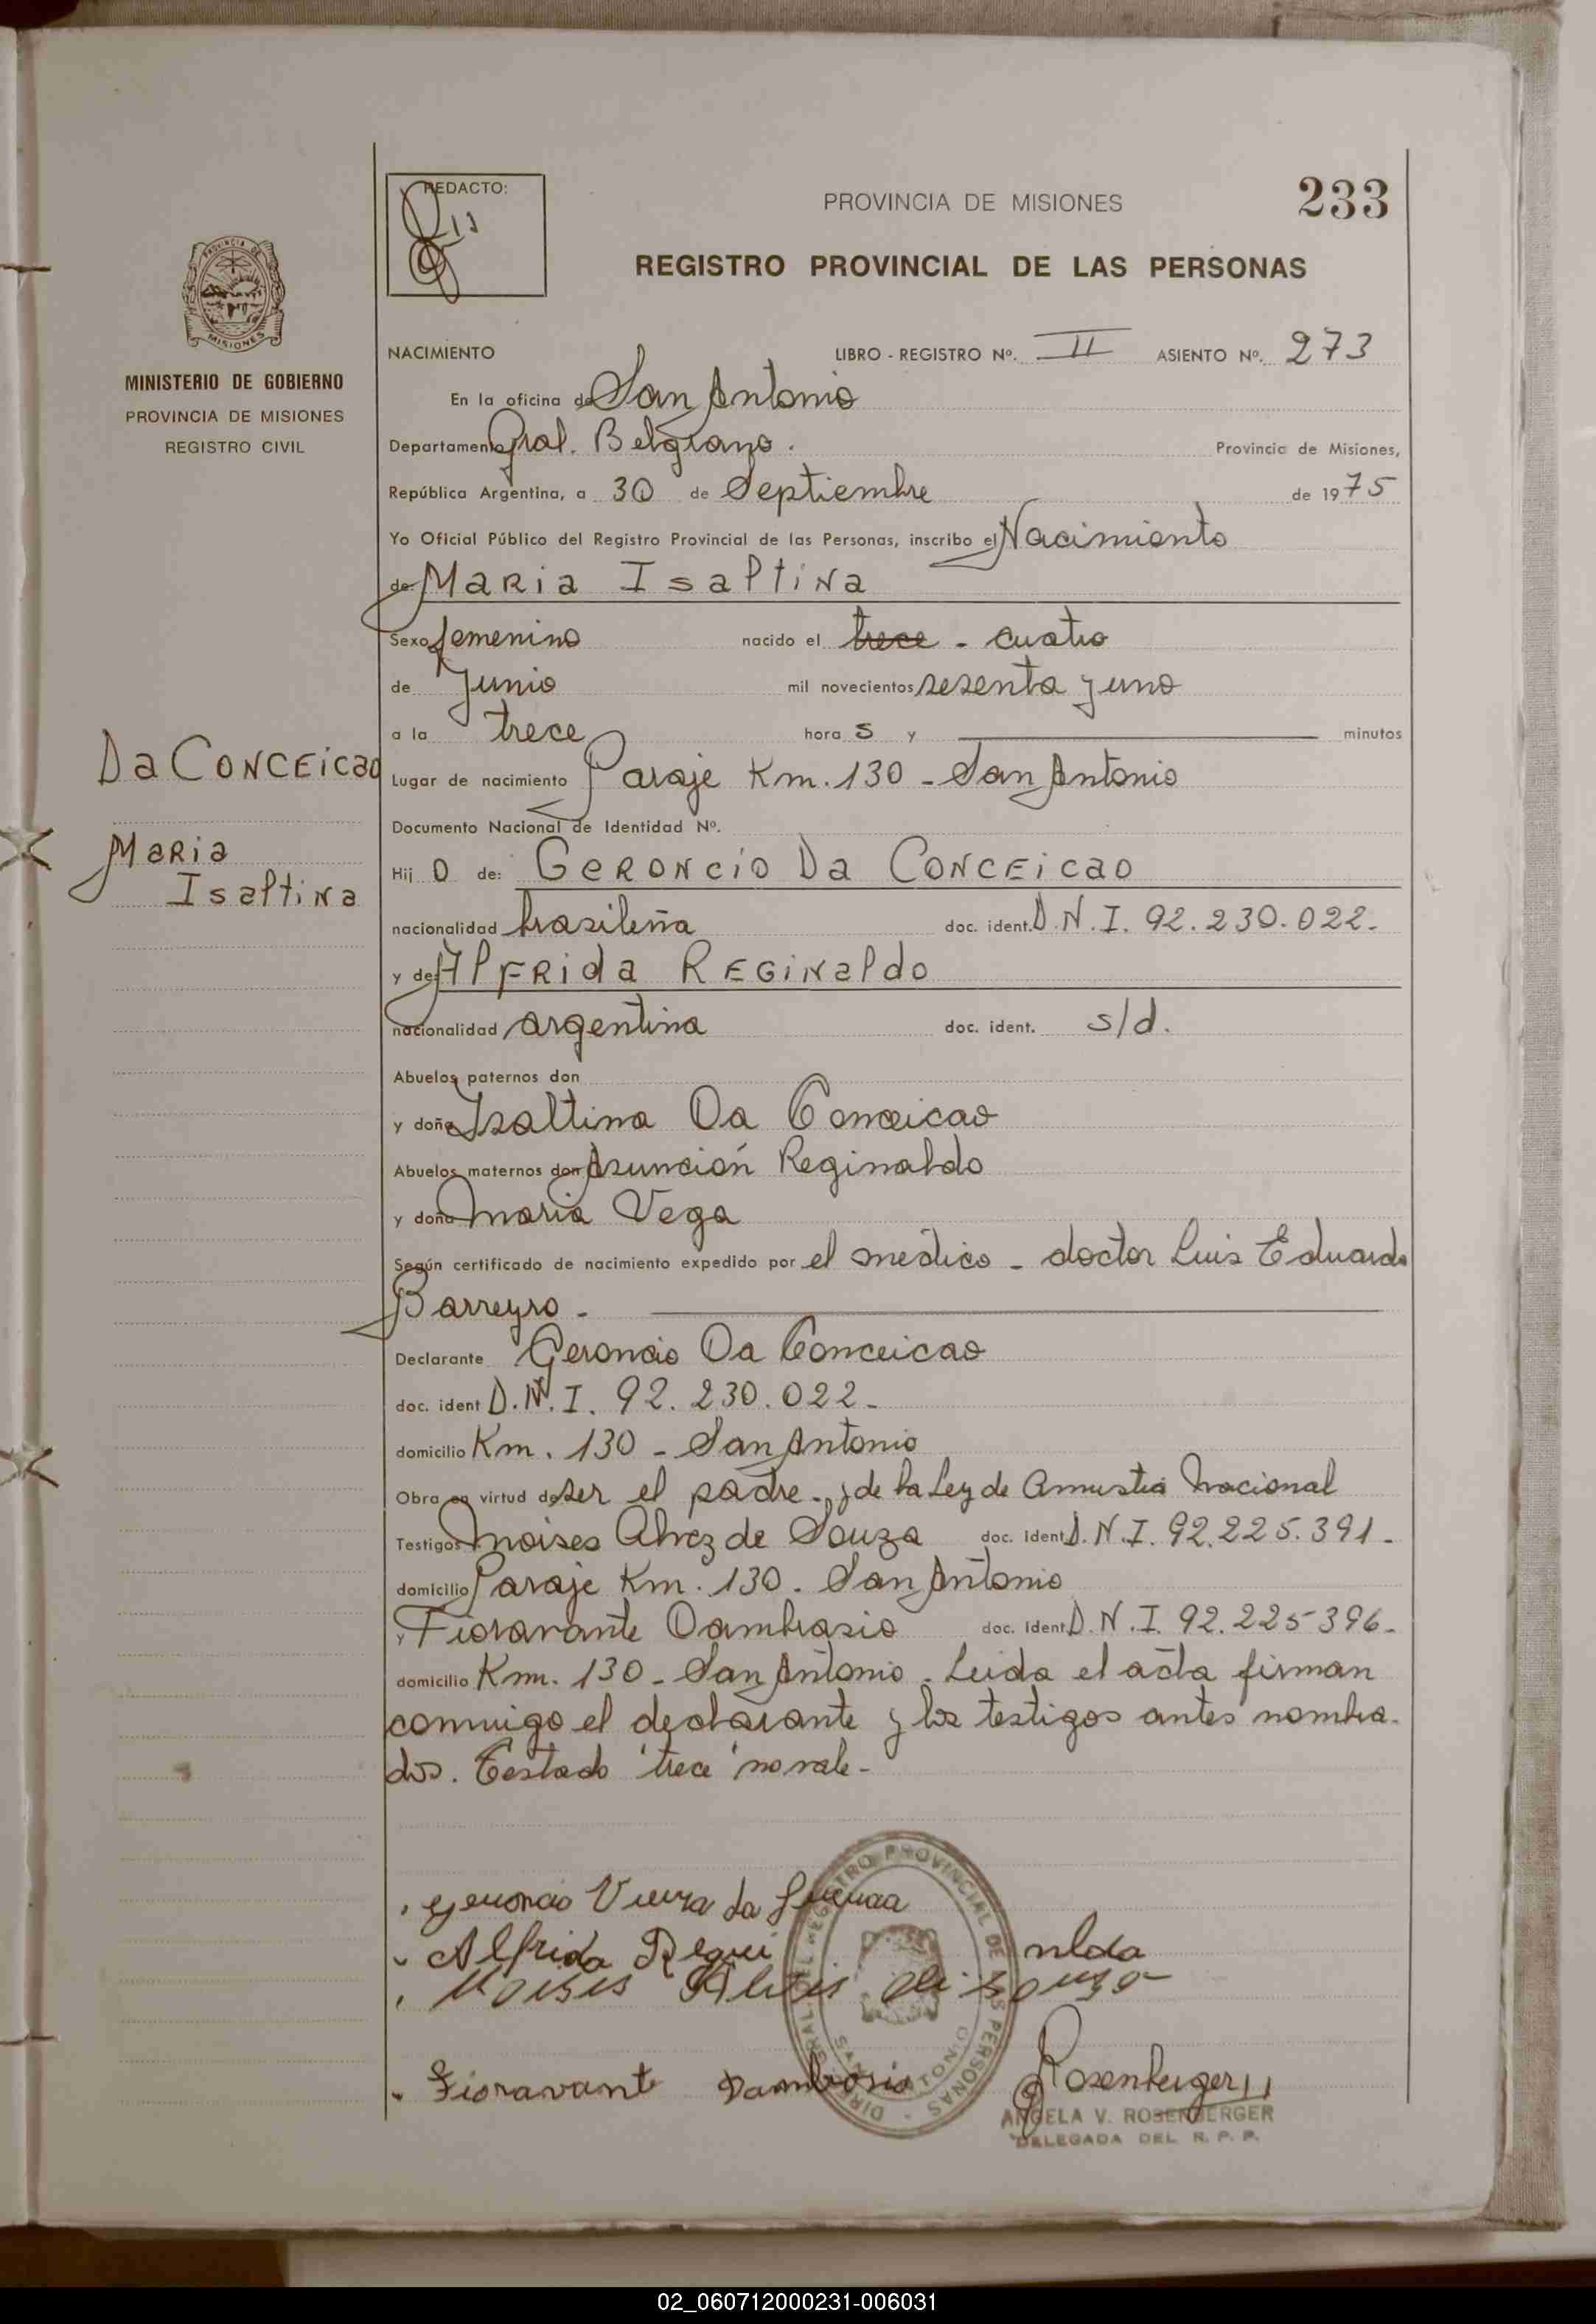 REDACTO:
PROVINCIA DE MISIONES
233
REGISTRO PROVINCIAL DE LAS PERSONAS
PROVINCIA DE MISIONES
MINISTERIO DE GOBIERNO
PROVINCIA DE MISIONES
REGISTRO CIVIL
NACIMIENTO LIBRO - REGISTRO Nº. II ASIENTO Nº. 273
En la oficina de San Antonio
Departamento Gral. Belgrano. Provincia de Misiones,
República Argentina, a 30 de Septiembre de 1975
Yo Oficial Público del Registro Provincial de las Personas, inscribo el Nacimiento
de Maria Isaltina
Sexo femenino nacido el trece - cuatro
de Junio mil novecientos sesenta y uno
a la trece hora s y minutos
Da Conceicao
Lugar de nacimiento Paraje Km. 130 - San Antonio
Documento Nacional de Identidad Nº.
Maria
Isaltina
Hij o de: Geroncio Da Conceicao
nacionalidad brasileña doc. ident. D.N.I. 92.230.022.-
y de Alfrida Reginaldo
nacionalidad argentina doc. ident. s/d.
Abuelos paternos don
y doña Isaltina Da Conceicao
Abuelos maternos don Asunción Reginaldo
y doña Maria Vega
Según certificado de nacimiento expedido por el médico - doctor Luis Eduardo
Barreyro -
Declarante Geroncio Da Conceicao
doc. ident D.N.I. 92.230.022-
domicilio Km. 130 - San Antonio
Obra en virtud de ser el padre - y de la Ley de Amnistia Nacional
Testigos Moises Alvez de Souza doc. ident. D.N.I. 92.225.391-
domicilio Paraje Km. 130. San Antonio
y Fioravante Dambrasio doc. ident. D.N.I. 92.225396-
domicilio Km. 130 - San Antonio. Leida el acta firman
conmigo el declarante y los testigos antes nombra-
dos. Testado "trece" no vale -
Geroncio Vieira da
Alfrida Regui nlda
Moises Alves di Souza
Fioravante Dambrosio
Rosenberger
DIRECCION GRAL. DEL REGISTRO PROVINCIAL DE LAS PERSONAS
SAN ANTONIO
ANGELA V. ROSENBERGER
DELEGADA DEL R. P. P.
02_060712000231-006031